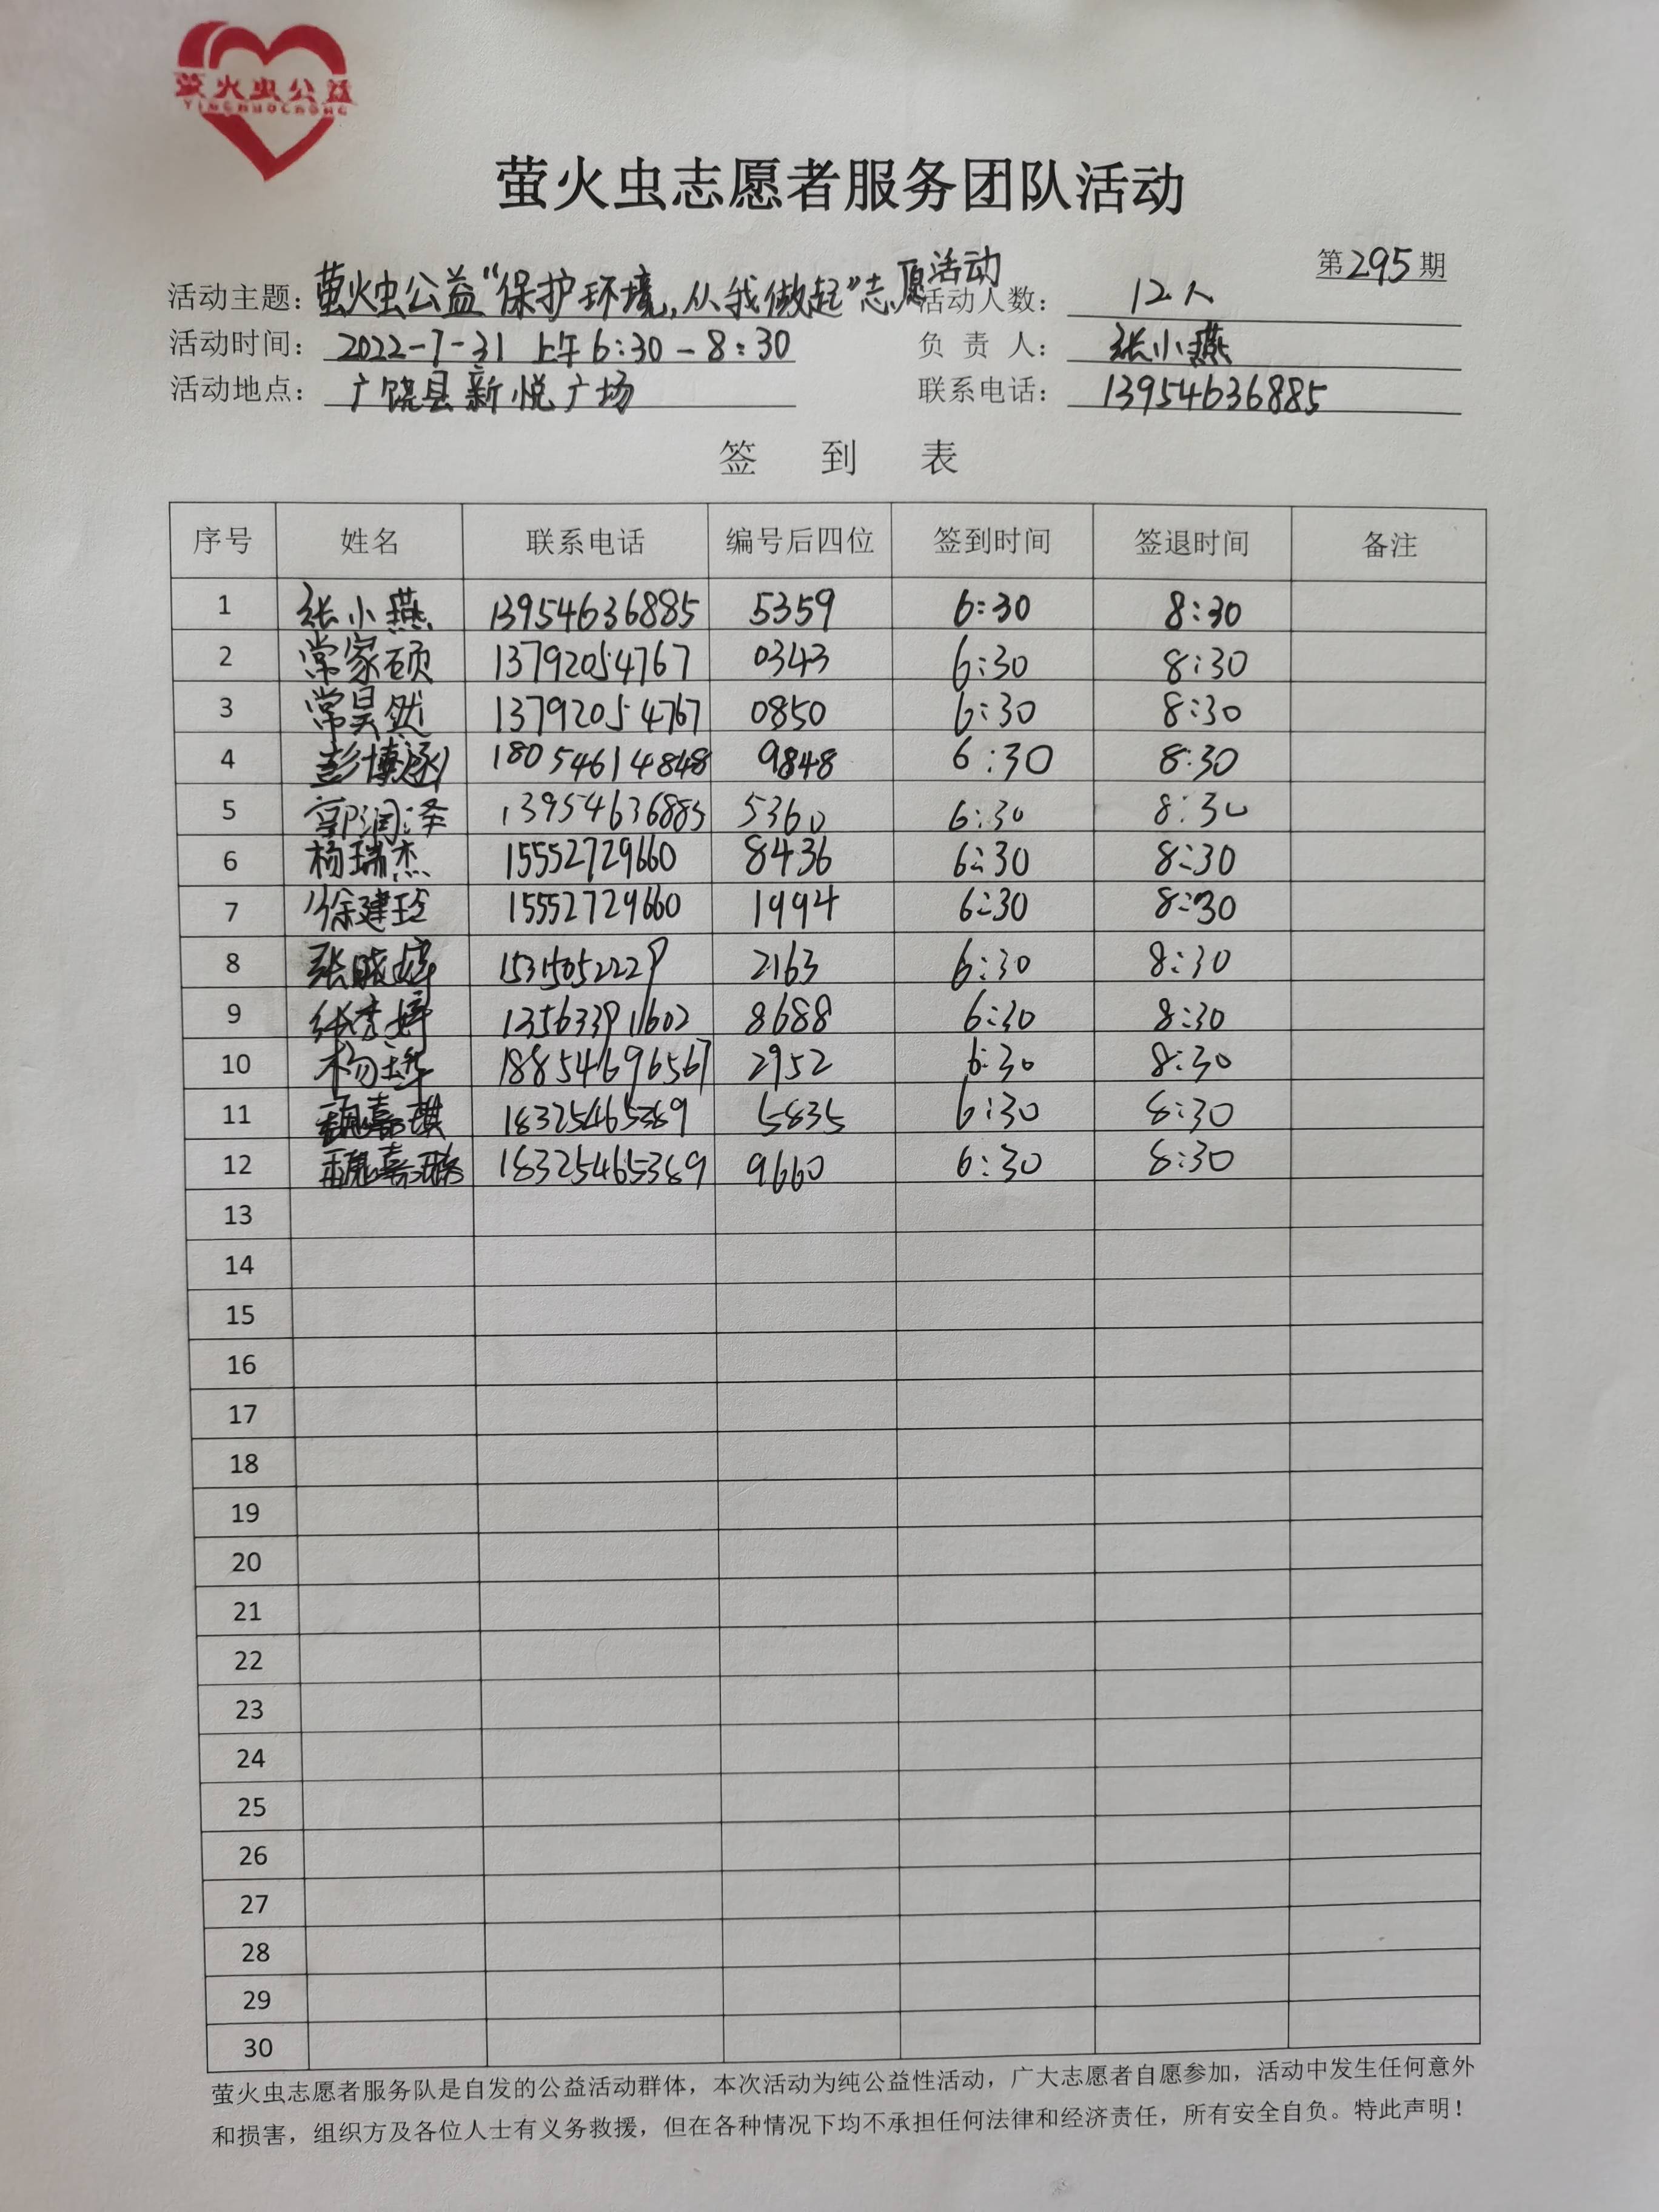 萤火虫公益
YINGHUOCHONG
萤火虫志愿者服务团队活动
第295期
活动主题：萤火虫公益“保护环境，从我做起”志愿活动 活动人数：12人
活动时间：2022-7-31 上午6:30-8:30 负责人：张小燕
活动地点：广饶县新悦广场 联系电话：13954636885
签到表
序号 姓名 联系电话 编号后四位 签到时间 签退时间 备注
1 张小燕 13954636885 5359 6:30 8:30
2 常家硕 13792054767 0343 6:30 8:30
3 常昊然 13792054767 0850 6:30 8:30
4 彭博涵 18054614848 9848 6:30 8:30
5 郭润泽 13954636885 5360 6:30 8:30
6 杨瑞杰 15552729660 8436 6:30 8:30
7 徐建玲 15552729660 1994 6:30 8:30
8 张晓婷 15315052229 2163 6:30 8:30
9 13563391602 8688 6:30 8:30
10 杨 18854696567 2952 6:30 8:30
11 魏嘉琪 18325465389 5835 6:30 8:30
12 魏嘉 18325465389 9660 6:30 8:30
13
14
15
16
17
18
19
20
21
22
23
24
25
26
27
28
29
30
萤火虫志愿者服务队是自发的公益活动群体，本次活动为纯公益性活动，广大志愿者自愿参加，活动中发生任何意外
和损害，组织方及各位人士有义务救援，但在各种情况下均不承担任何法律和经济责任，所有安全自负。特此声明！